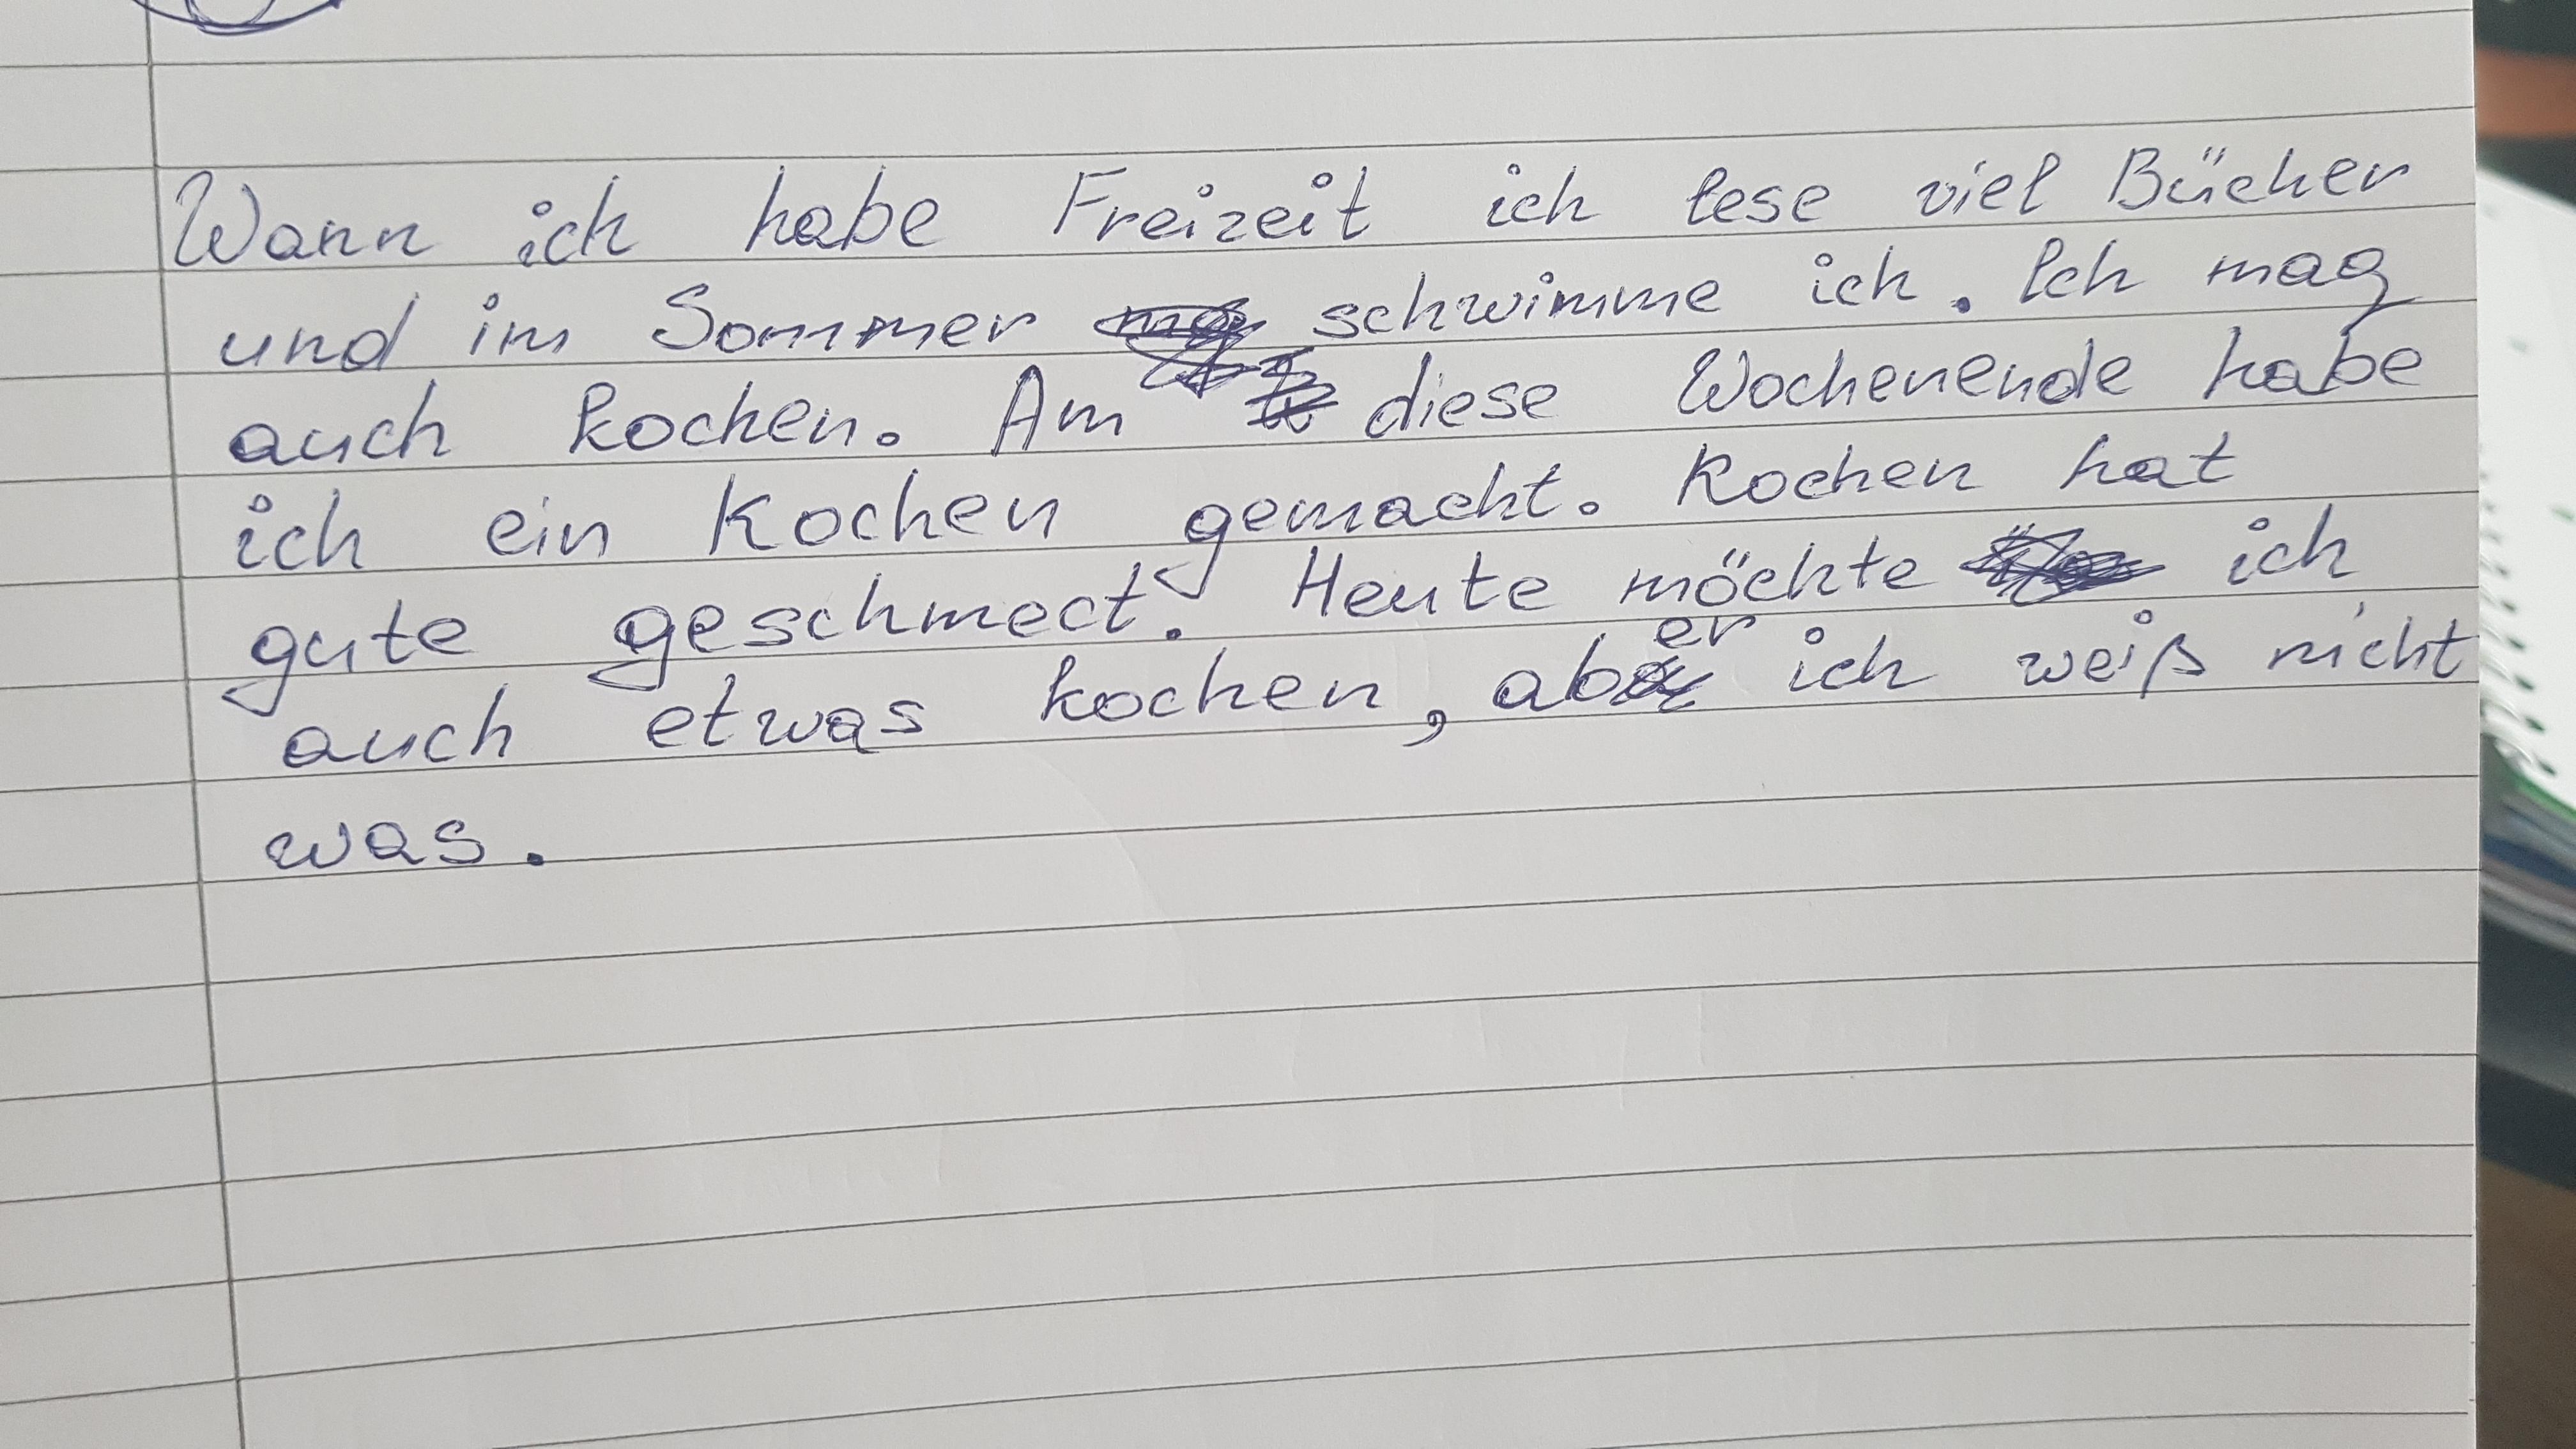 Wann ich habe Freizeit ich lese viel Bücher
und im Sommer schwimme ich. Ich mag
auch kochen. Am diese Wochenende habe
ich ein Kochen gemacht. Kochen hat
gute geschmect. Heute möchte ich
auch etwas kochen, aber ich weiß nicht
was.